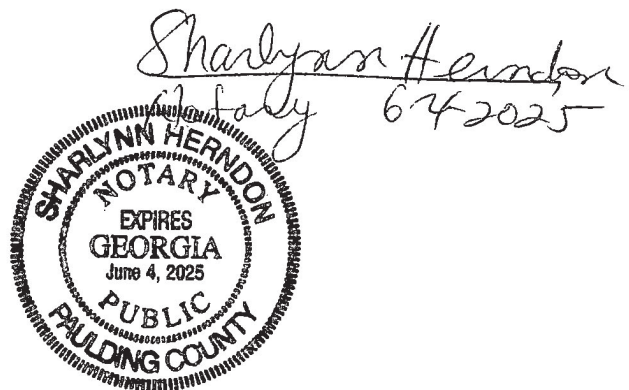 Sharlynn Herndon
Notary 6-4-2025
SHARLYNN HERNDON
NOTARY
EXPIRES
GEORGIA
June 4, 2025
PUBLIC
PAULDING COUNTY